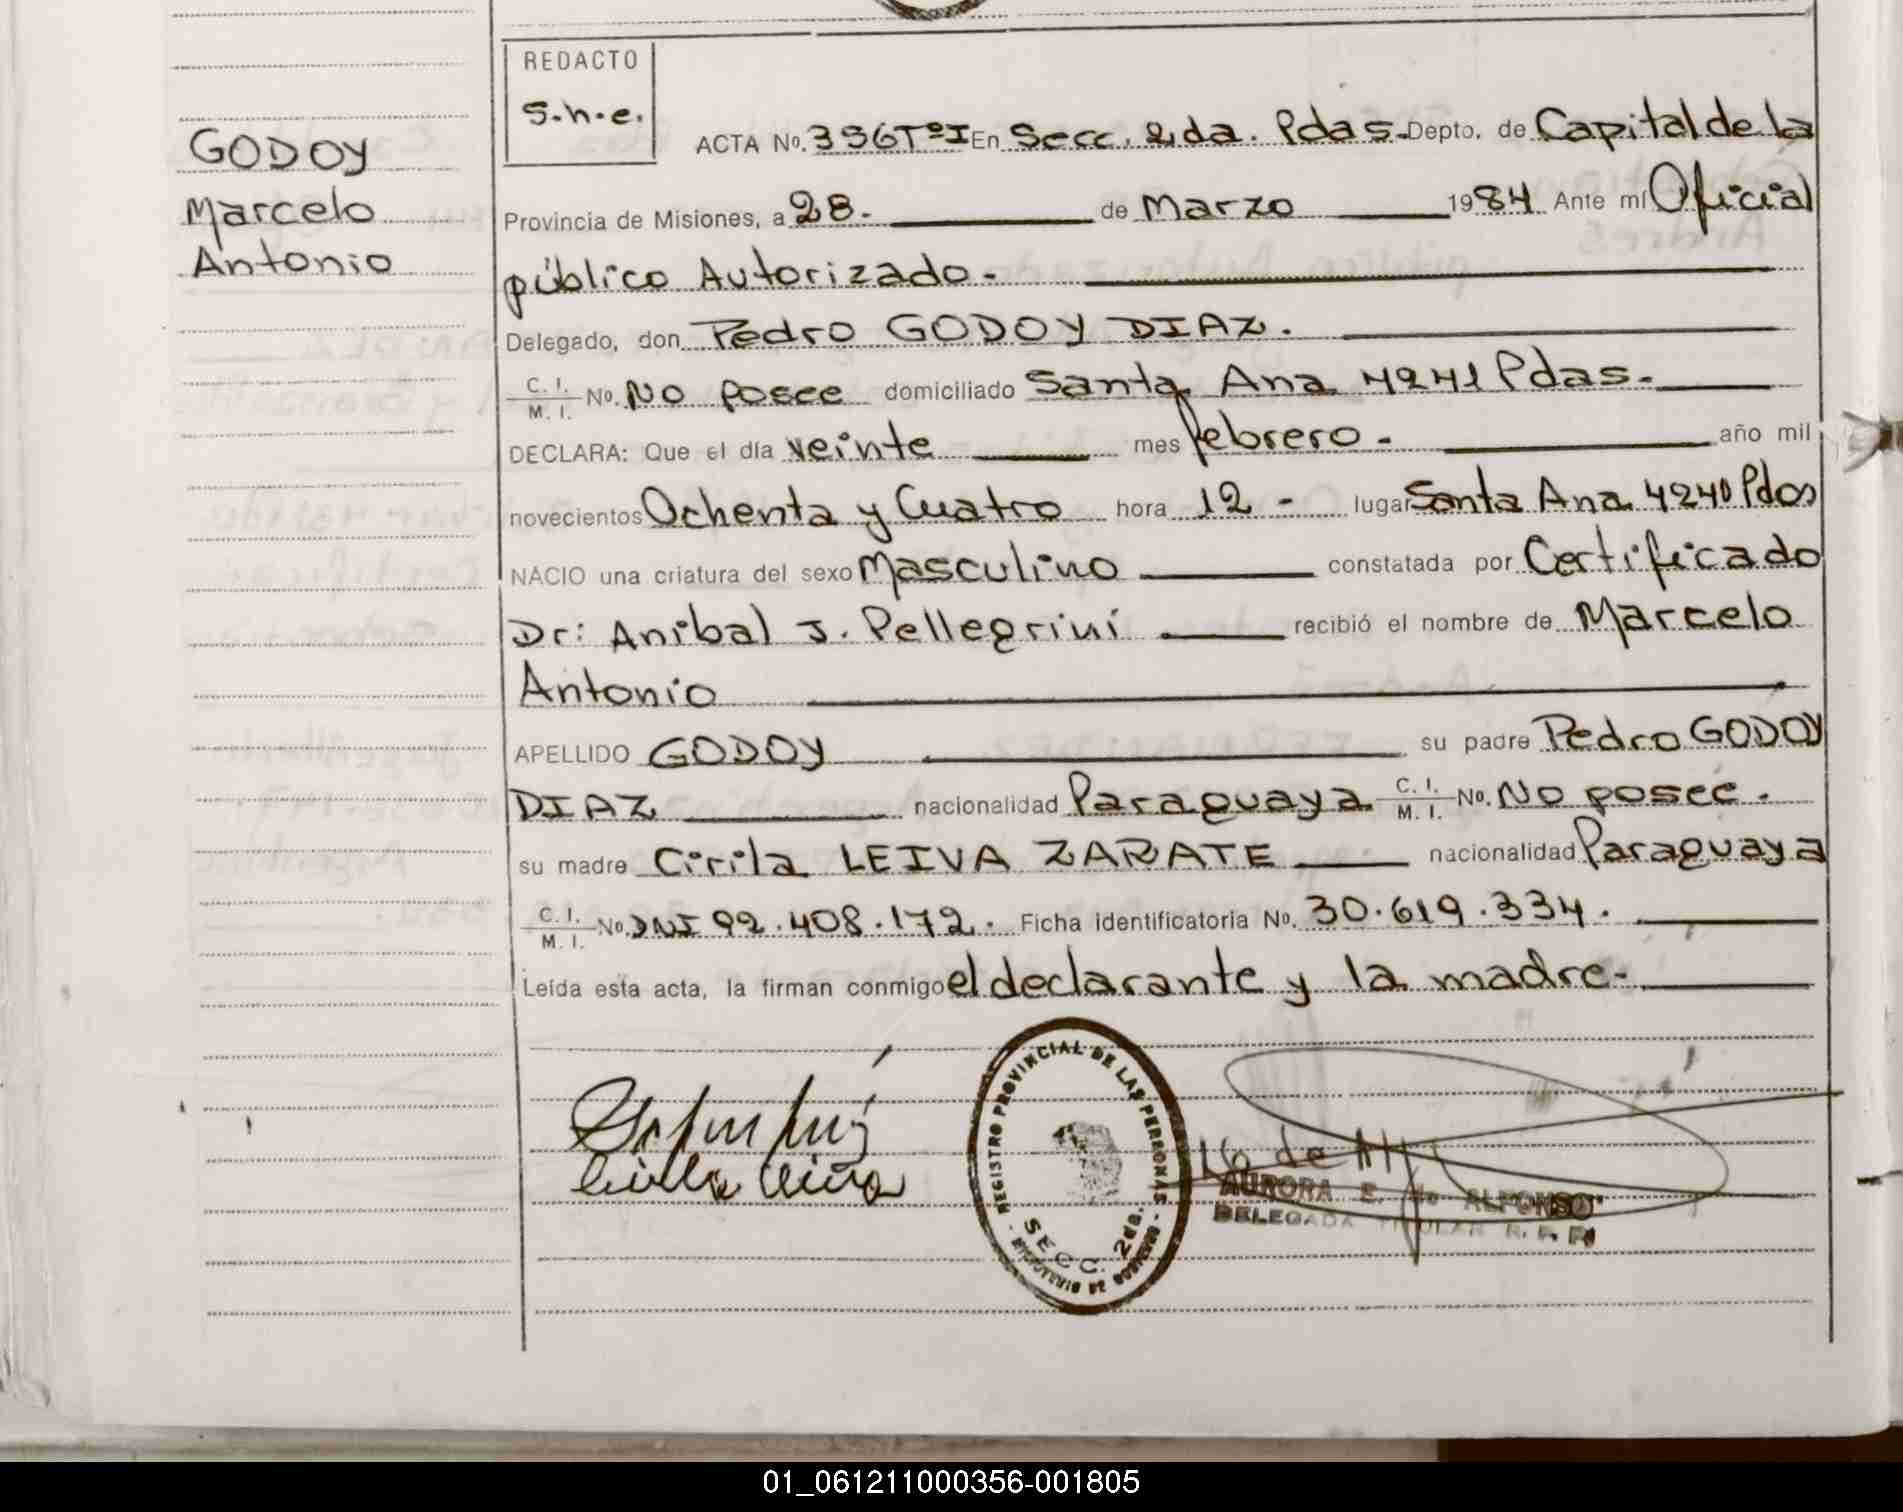 REDACTO
S.h.e.
GODOY
Marcelo
Antonio
ACTA No. 356 Tº I En Secc. 2da. Pdas. Depto. de Capital de la
Provincia de Misiones, a 28. de Marzo 1984 Ante mí Oficial
público Autorizado.
Delegado, don Pedro GODOY DIAZ.
C. I. / M. I. No. No posee domiciliado Santa Ana 4241 Pdas.
DECLARA: Que el día veinte mes febrero. año mil
novecientos Ochenta y Cuatro hora 12 - lugar Santa Ana 4240 Pdas
NACIO una criatura del sexo Masculino constatada por Certificado
Dr: Anibal J. Pellegrini recibió el nombre de Marcelo
Antonio
APELLIDO GODOY su padre Pedro GODOY
DIAZ nacionalidad Paraguaya C. I. / M. I. No. No posee.
su madre Cirila LEIVA ZARATE nacionalidad Paraguaya
C. I. / M. I. No. DNI 92.408.172. Ficha identificatoria No. 30.619.334.
Leída esta acta, la firman conmigo el declarante y la madre-
REGISTRO PROVINCIAL DE LAS PERSONAS
SECC. 2da.
AURORA E. de ALFONSO
DELEGADA TITULAR R. P. P.
01_061211000356-001805